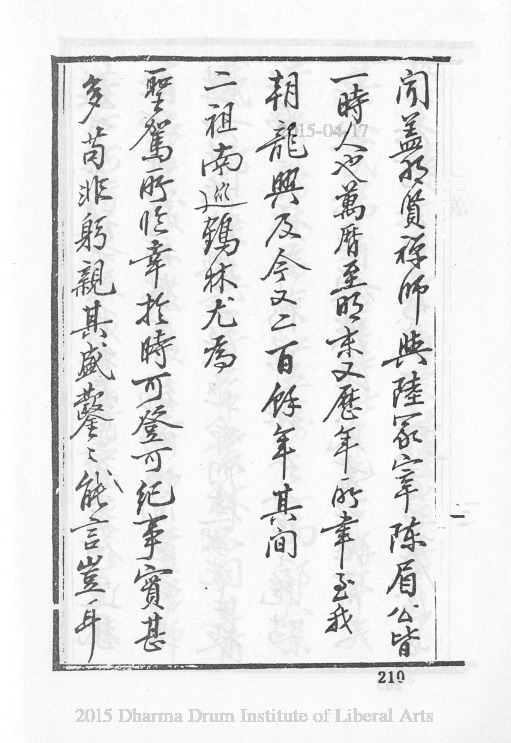 聞蓋明賢禪師與陸冢宰陳眉公皆
一時人也萬曆至明末又歷年所聿至我
朝龍興及今又二百餘年其間
二祖南巡鶴林尤為
聖駕所臨幸於時可登可紀事實甚
多苟非躬親其盛鑿鑿能言豈耳
210
2015-04-17
2015 Dharma Drum Institute of Liberal Arts